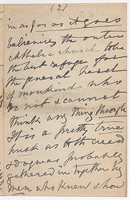 (2)
in as far as it goes
believing the outer
Catholic church to be
the best refuge for
the general herd
of mankind who
do not & cannot
think any thing through
It is a pretty true
husk as both creed
& dogmas probably
gathered in together by
men who knew &